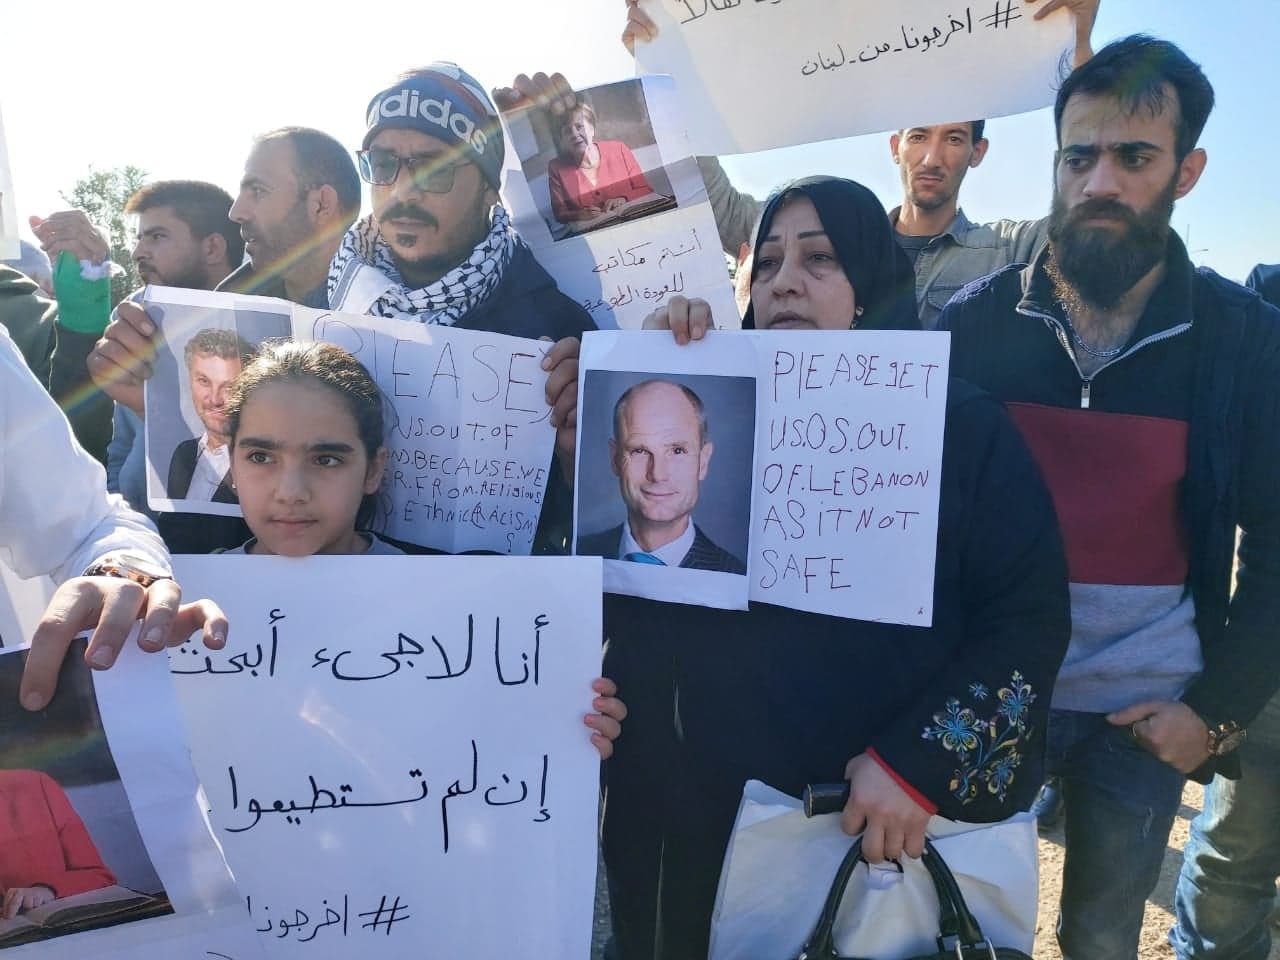 # اخرجونا_من_لبنان
adidas
أنتم مكاتب
للعودة الطوعية
PLEASE
US.OUT.OF
BECAUSE.WE
FROM.RELIGIOUS
ETHNIC RACISM
PLEASE GET
US.OS.OUT.
OF.LEBANON
AS iT NOT
SAFE
أنا لاجىء أبحث
إن لم تستطيعوا
# اخرجونا